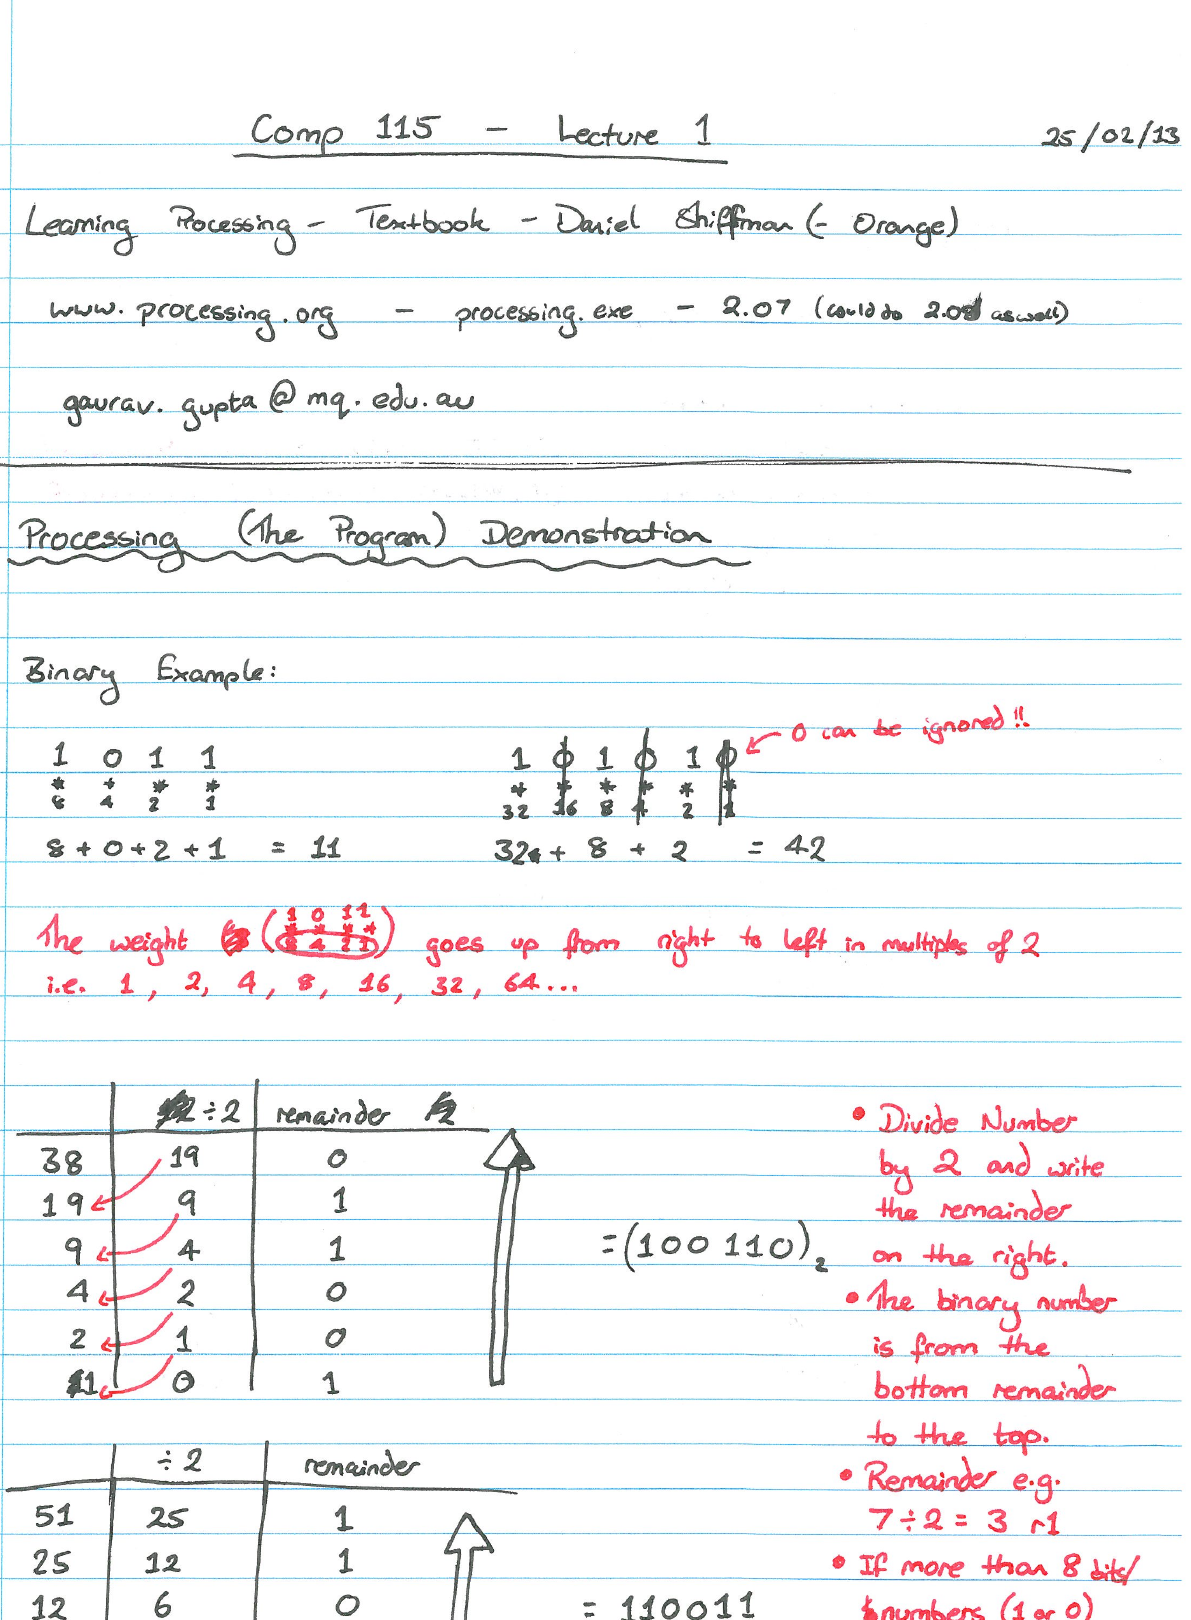 Comp 115 - Lecture 1
25/02/13
Learning Processing - Textbook - Daniel Shiffman (- Orange)
www.processing.org - processing.exe - 2.07 (could do 2.08 as well)
gaurav.gupta@mq.edu.au
Processing (The Program) Demonstration
Binary Example:
0 can be ignored!!
1 0 1 1
* * * *
8 4 2 1
8 + 0 + 2 + 1 = 11
1 0 1 0 1 0
* * * * * *
32 16 8 4 2 1
32 + 8 + 2 = 42
1 0 1 1
* * * *
The weight (8 4 2 1) goes up from right to left in multiples of 2
i.e. 1, 2, 4, 8, 16, 32, 64...
÷2 remainder
38 19 0
19 9 1
9 4 1
4 2 0
2 1 0
1 0 1
=(100 110)₂
÷2 remainder
51 25 1
25 12 1
12 6 0
= 110011
• Divide Number
by 2 and write
the remainder
on the right.
• The binary number
is from the
bottom remainder
to the top.
• Remainder e.g.
7÷2 = 3 r1
• If more than 8 bits/
numbers (1 or 0)